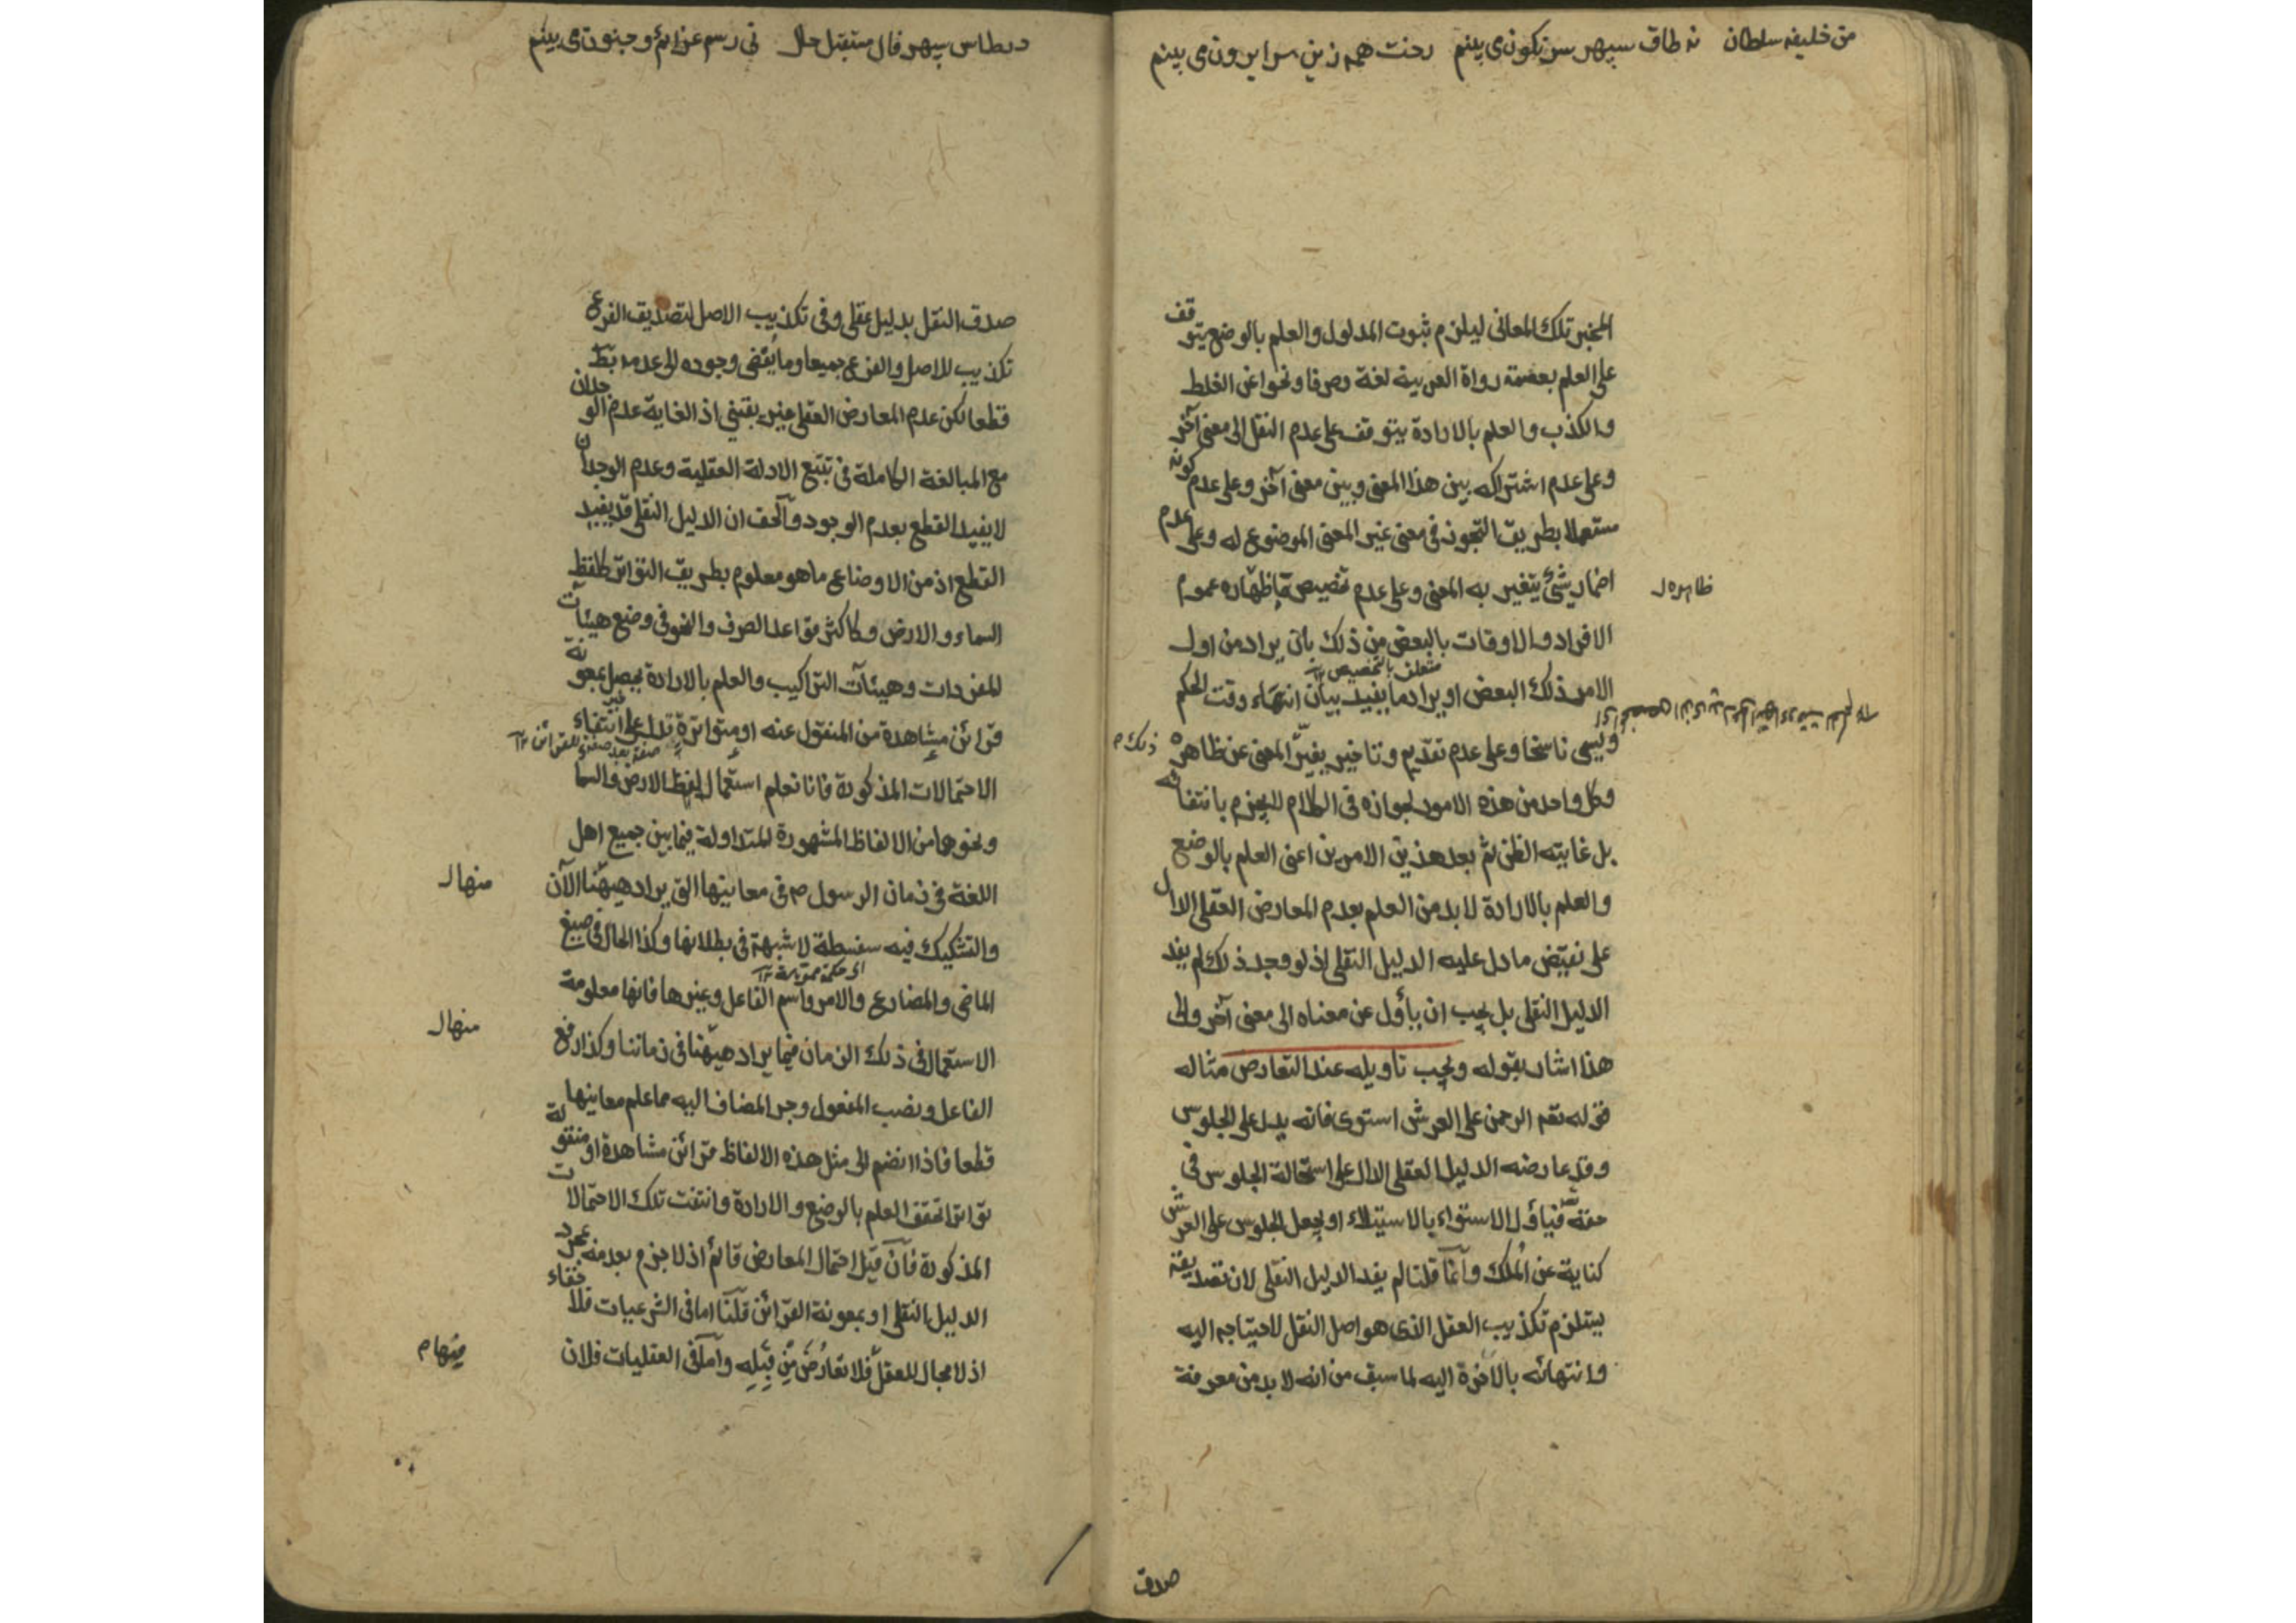 من خليفه سلطان نه طاق سپهر سرنكون مى بينم رخت همه زين سرا برون مى بينم
المخبر تلك المعانى ليلزم ثبوت المدلول والعلم بالوضع يتوقف
على العلم بعصمة رواة العربية لغة وصرفا ونحوا عن الغلط
والكذب والعلم بالارادة يتوقف على عدم النقل الى معنى آخر
وعلى عدم اشتراكه بين هذا المعنى وبين معنى آخر وعلى عدم كونه
مستعملا بطريق التجوز فى معنى غير المعنى الموضوع له وعلى عدم
اضمار شئ يتغير به المعنى وعلى عدم تخصيص ما ظهاره عموم
ظاهره ل
الافراد والاوقات بالبعض من ذلك بان يراد من اول
متعلق بالتخصيص ١٢
الامر ذلك البعض او يراد ما يفيد بيان انتهاء وقت الحكم
ويسمى ناسخا وعلى عدم تقديم وتاخير يغيّر المعنى عن ظاهره
ذلك م
وكل واحد من هذه الامور لجوازه فى الكلام لا يجزم بانتفائه
بل غايته الظن ثم بعد هذين الامرين اعنى العلم بالوضع
والعلم بالارادة لا بد من العلم بعدم المعارض العقلى الدال
على نقيض ما دل عليه الدليل النقلى اذ لو وجد ذلك لم يفد
الدليل النقلى بل يجب ان يأول عن معناه الى معنى آخر والى
هذا اشار بقوله ويجب تاويله عند التعارض مثاله
قوله تعم الرحمن على العرش استوى فانه يدل على الجلوس
وقد عارضه الدليل العقلى الدال على استحالة الجلوس فى
حقه تع فيأول الاستواء بالاستيلاء او يجعل الجلوس على العرش
كناية عن المُلك وانما قلنا لم يفد الدليل النقلى لان تصديقه
يستلزم تكذيب العقل الذى هو اصل النقل لاحتياجه اليه
وانتهائه بالآخرة اليه لما سبق من انه لا بد من معرفة
صدق
در طاس سپهر فال مستقبل حال نى رسم عزائم و جنون مى بينم
صدق النقل بدليل عقلى وفى تكذيب الاصل لتصديق الفرع
تكذيب للاصل والفرع جميعا وما يفضى وجوده الى عدمه بط
قطعا لكن عدم المعارض العقلى غير يقينى اذ الغاية عدم الوجدان
مع المبالغة الكاملة فى تتبع الادلة العقلية وعدم الوجدان
لا يفيد القطع بعدم الوجود والحق ان الدليل النقلى قد يفيد
القطع اذ من الاوضاع ما هو معلوم بطريق التواتر كلفظ
السماء والارض وكاكثر قواعد الصرف والنحو فى وضع هيئات
المفردات وهيئآت التراكيب والعلم بالارادة يحصل بمعونة
قرائن مشاهدة من المنقول عنه او متواترة تدل على انتفاء
صفة بعد صفة للقرائن ١٢
الاحتمالات المذكورة فانا نعلم استعمال لفظ الارض والسما
ونحوهما من الالفاظ المشهورة المتداولة فيما بين جميع اهل
اللغة فى زمان الرسول ص فى معانيها التى يراد ههنا الآن
منها ل
والتشكيك فيه سفسطة لا شبهة فى بطلانها وكذا الحال فى صيغ
اى حكمة مموّهة ١٢
الماضى والمضارع والامر واسم الفاعل وغيرها فانها معلومة
الاستعمال فى ذلك الزمان فيما يراد ههنا فى زماننا وكذا رفع
منها ل
الفاعل ونصب المفعول وجر المضاف اليه مما علم معانيها
قطعا فاذا انضم الى مثل هذه الالفاظ قرائن مشاهدة او منقولة
تواترا تحقق العلم بالوضع والارادة وانتفت تلك الاحتمالات
المذكورة فان قيل احتمال المعارض قائم اذ لا جزم بعدمه بمجرد
الدليل النقلى او بمعونة القرائن قلنا اما فى الشرعيات فلا خفاء
اذ لا مجال للعقل فلا تعارُضَ مِن قِبَلِه واما فى العقليات فلان
منها م